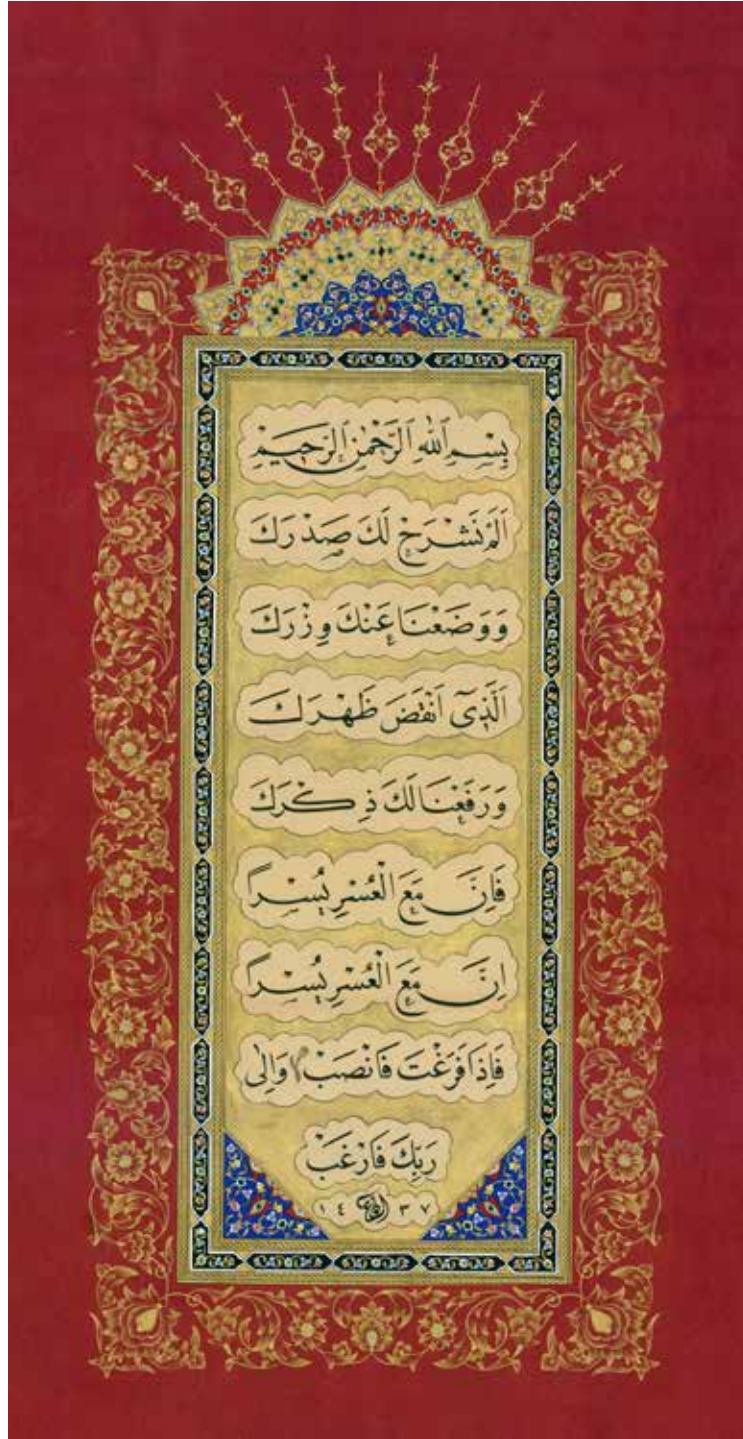 بِسْمِ ٱللّٰهِ ٱلرَّحْمٰنِ ٱلرَّحِيمِ
اَلَمْ نَشْرَحْ لَكَ صَدْرَكَ
وَوَضَعْنَا عَنْكَ وِزْرَكَ
اَلَّذِٓى اَنْقَضَ ظَهْرَكَ
وَرَفَعْنَا لَكَ ذِكْرَكَ
فَاِنَّ مَعَ الْعُسْرِ يُسْراً
اِنَّ مَعَ الْعُسْرِ يُسْراً
فَاِذَا فَرَغْتَ فَانْصَبْ وَاِلٰى
رَبِّكَ فَارْغَبْ
١٤ ٣٧